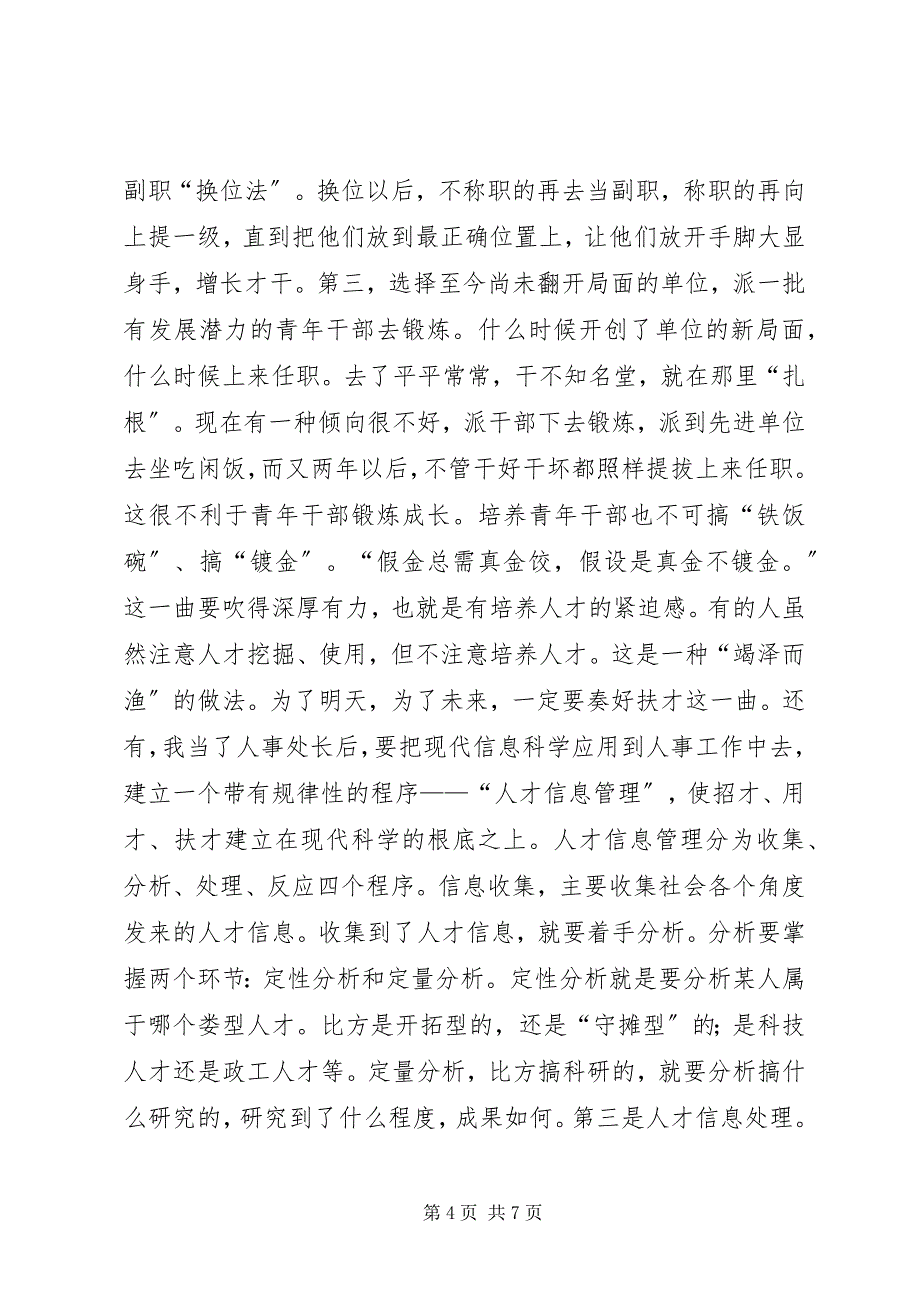 副职“换位法〞。换位以后，不称职的再去当副职，称职的再向
上提一级，直到把他们放到最正确位置上，让他们放开手脚大显
身手，增长才干。第三，选择至今尚未翻开局面的单位，派一批
有发展潜力的青年干部去锻炼。什么时候开创了单位的新局面，
什么时候上来任职。去了平平常常，干不知名堂，就在那里“扎
根〞。现在有一种倾向很不好，派干部下去锻炼，派到先进单位
去坐吃闲饭，而又两年以后，不管干好干坏都照样提拔上来任职。
这很不利于青年干部锻炼成长。培养青年干部也不可搞“铁饭
碗〞、搞“镀金〞。“假金总需真金饺，假设是真金不镀金。〞
这一曲要吹得深厚有力，也就是有培养人才的紧迫感。有的人虽
然注意人才挖掘、使用，但不注意培养人才。这是一种“竭泽而
渔〞的做法。为了明天，为了未来，一定要奏好扶才这一曲。还
有，我当了人事处长后，要把现代信息科学应用到人事工作中去，
建立一个带有规律性的程序——“人才信息管理〞，使招才、用
才、扶才建立在现代科学的根底之上。人才信息管理分为收集、
分析、处理、反应四个程序。信息收集，主要收集社会各个角度
发来的人才信息。收集到了人才信息，就要着手分析。分析要掌
握两个环节：定性分析和定量分析。定性分析就是要分析某人属
于哪个娄型人才。比方是开拓型的，还是“守摊型〞的；是科技
人才还是政工人才等。定量分析，比方搞科研的，就要分析搞什
么研究的，研究到了什么程度，成果如何。第三是人才信息处理。
第 4 页 共 7 页